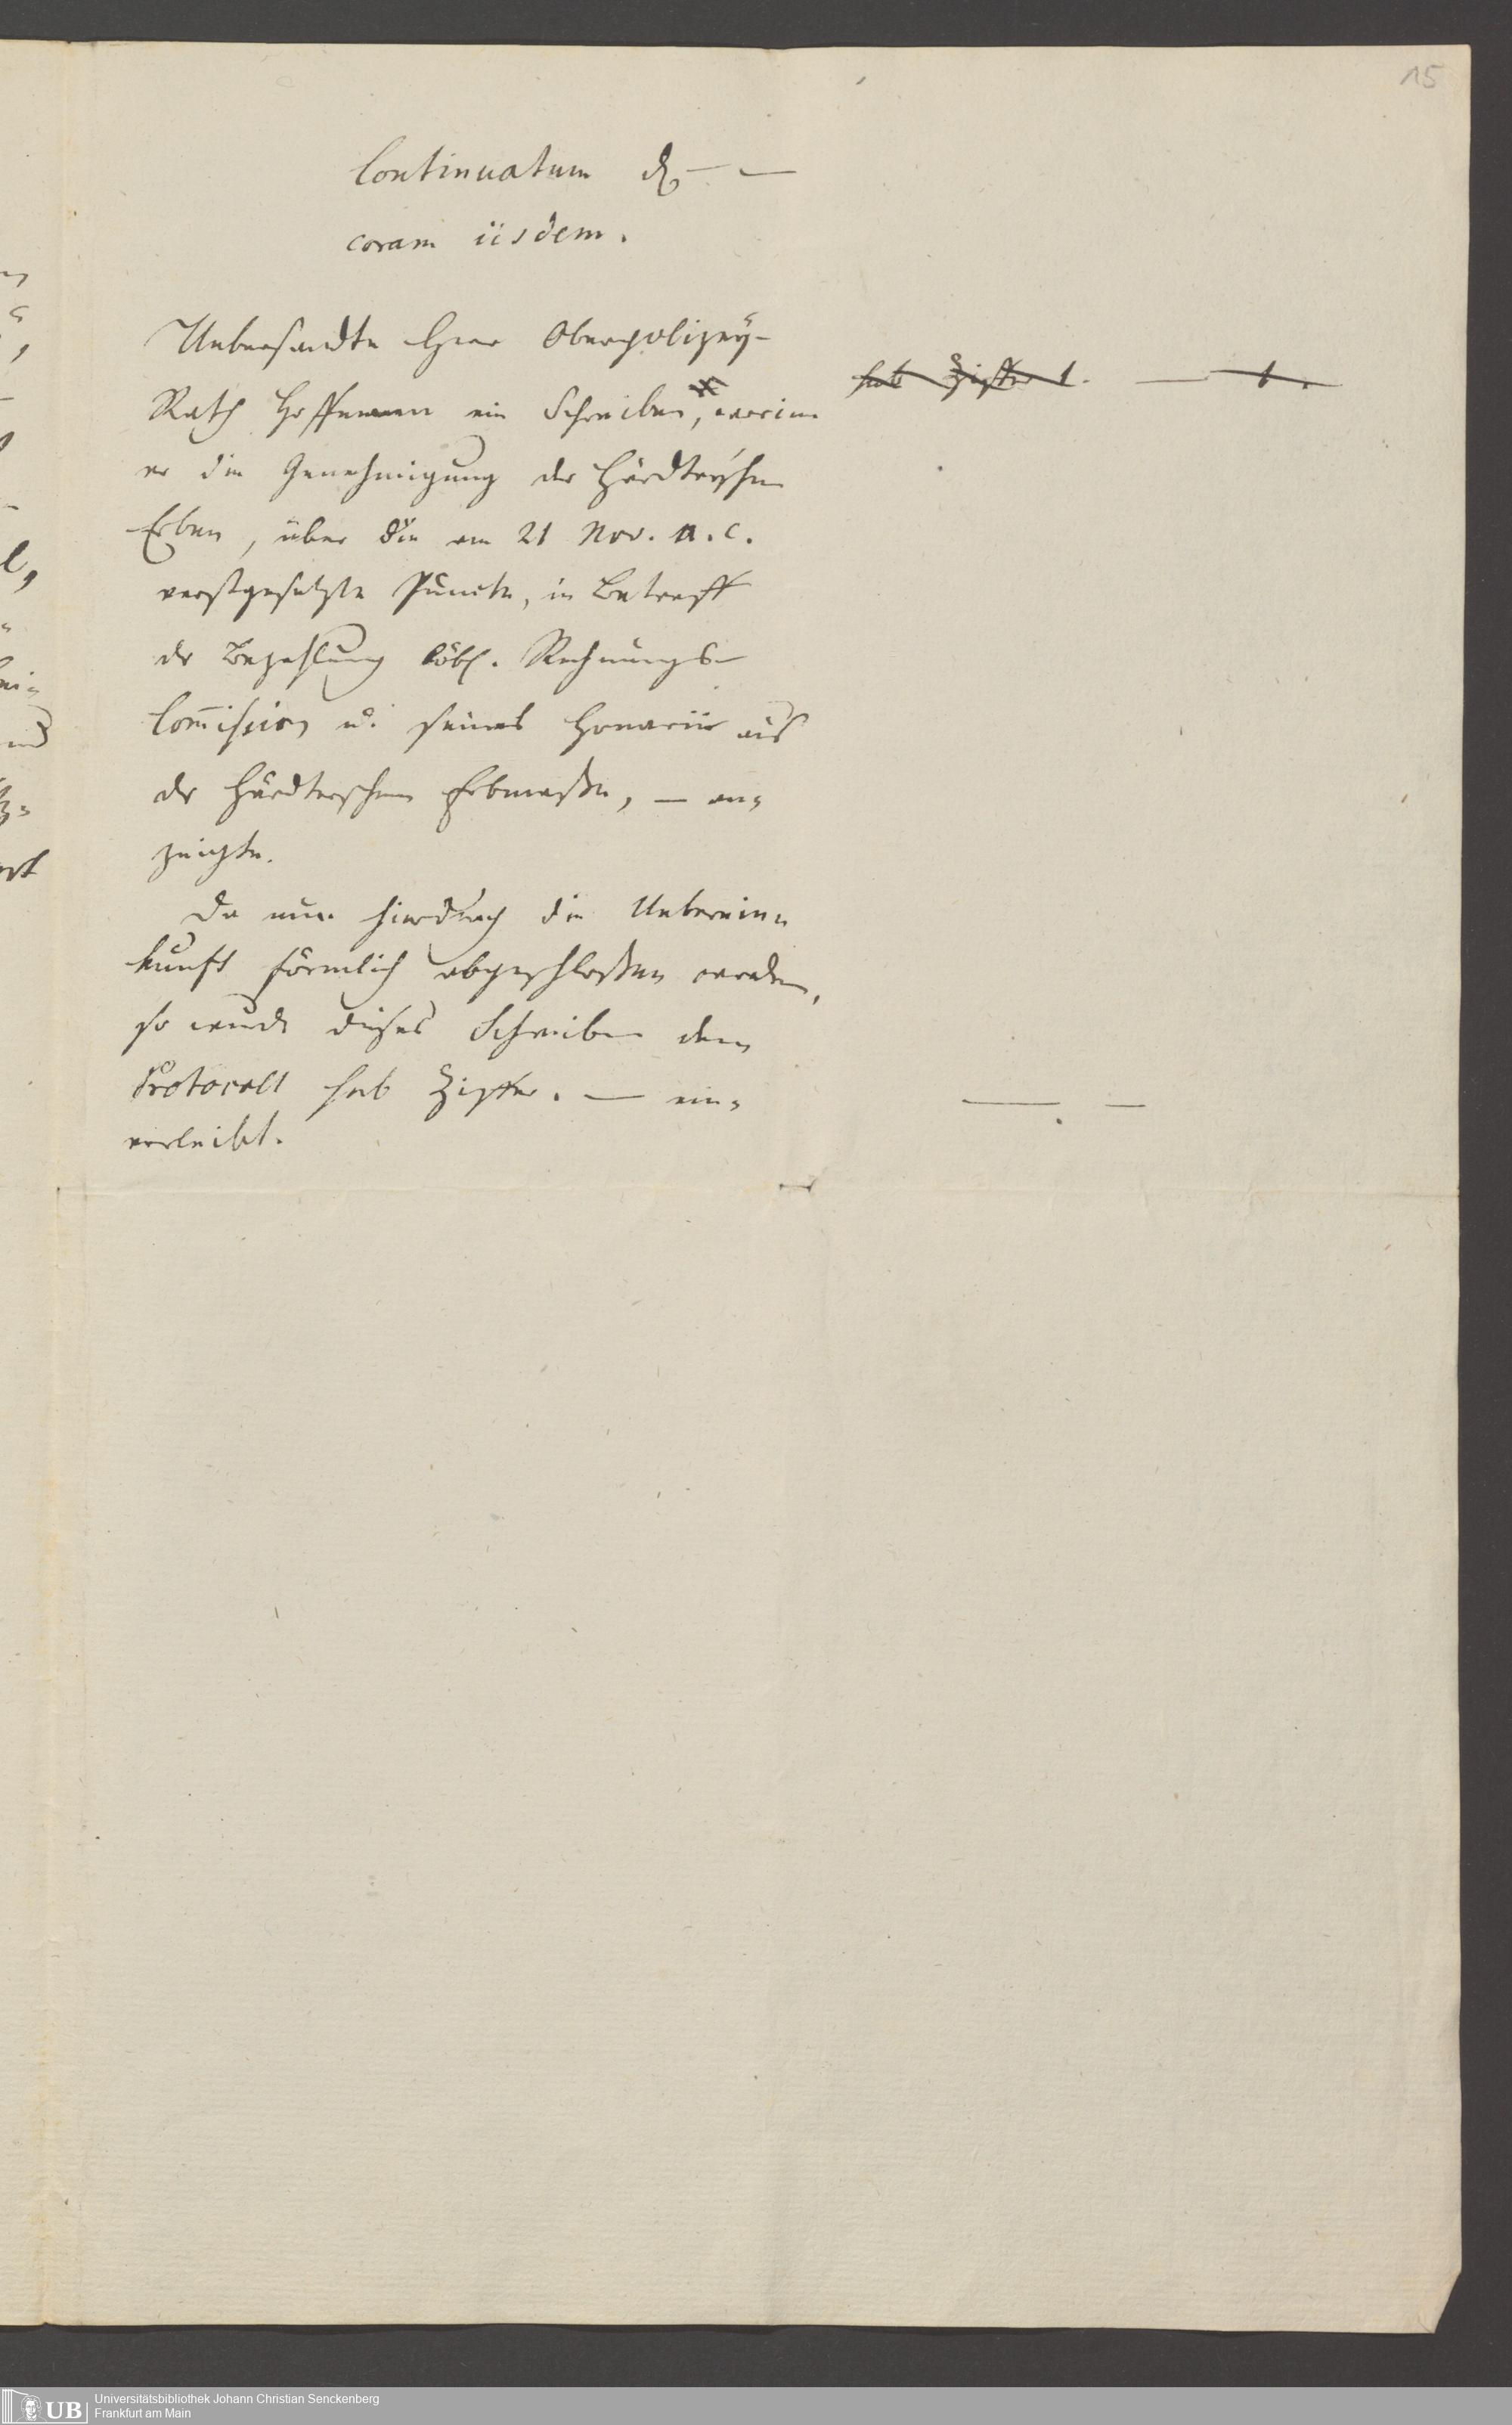 15
Continuatum d. — —
coram iisdem.
Uebersandte Herr Oberpolizey-
Rath Hoffmann ein Schreiben, worin
sub Ziffer 1. — 1.
er die Genehmigung der Härdterschen
Erben, über die am 21 Nov. a. c.
vestgesetzte Puncte, in Betreff
der Bezahlung löbl. Rechnungs-
Commission u. seines Honorarii aus
der Härdterschen Erbmasse, — an-
zeigte.
Da nun hierdurch die Ueberein-
kunft förmlich abgeschlossen worden,
so wurde dieses Schreiben dem
Protocoll sub Ziffer. — ein-
verleibt.
UB
Universitätsbibliothek Johann Christian Senckenberg
Frankfurt am Main